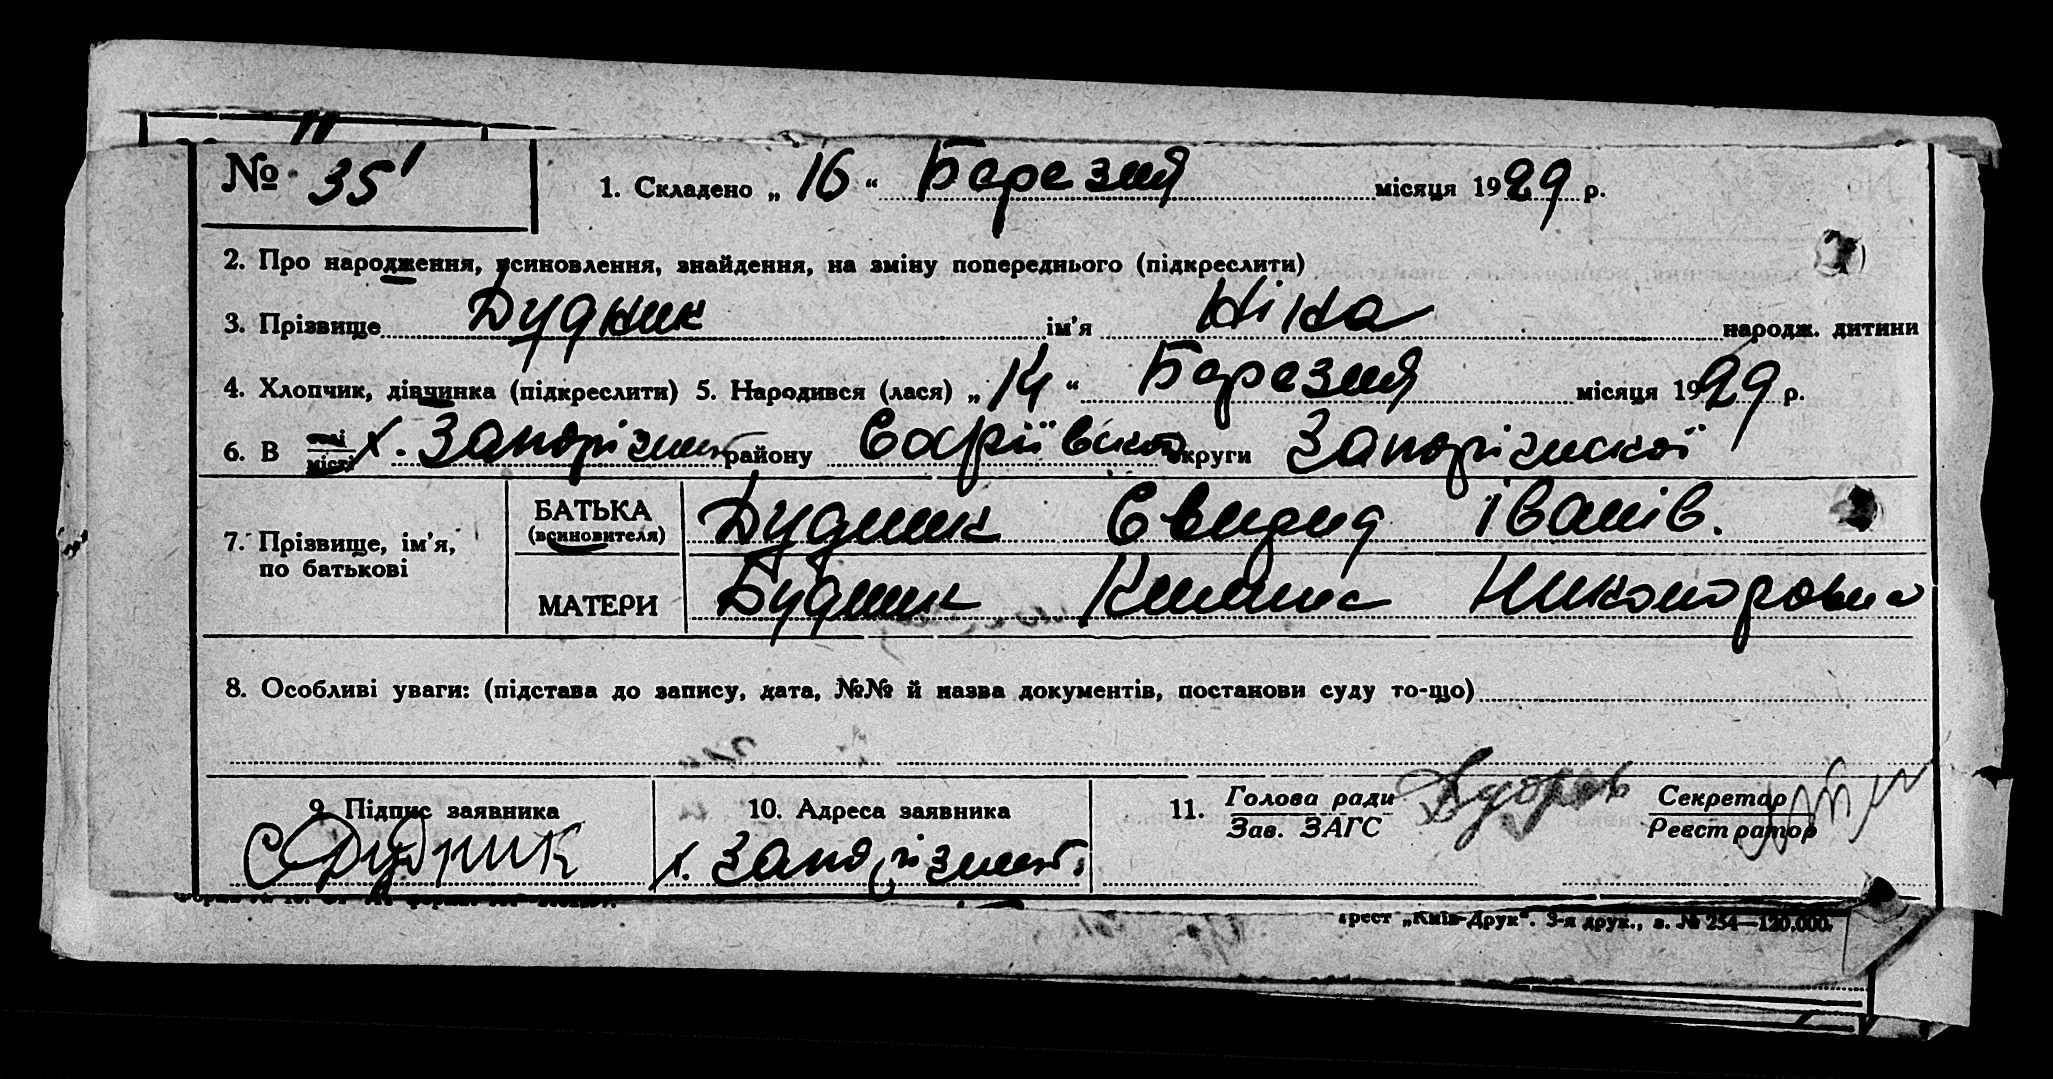 № 35
1. Складено „ 16 “ Березня місяця 1929 р.
2. Про народження, усиновлення, знайдення, на зміну попереднього (підкреслити)
3. Прізвище Дудник ім'я Ніна народж. дитини
4. Хлопчик, дівчинка (підкреслити) 5. Народився (лася) „ 14 “ Березня місяця 1929 р.
6. В селі місті х. району Софіївськ округи Запоріжської
7. Прізвище, ім'я, по батькові
БАТЬКА (всиновителя) Дудник Іванів.
МАТЕРИ Дудник Никоноровна
8. Особливі уваги: (підстава до запису, дата, №№ й назва документів, постанови суду то-що)
9. Підпис заявника
СДудник
10. Адреса заявника
х.
11. Голова ради Зав. ЗАГС
Секретар Реєстратор
трест „Київ-Друк“. 3-я друк., з. № 254—120.000.